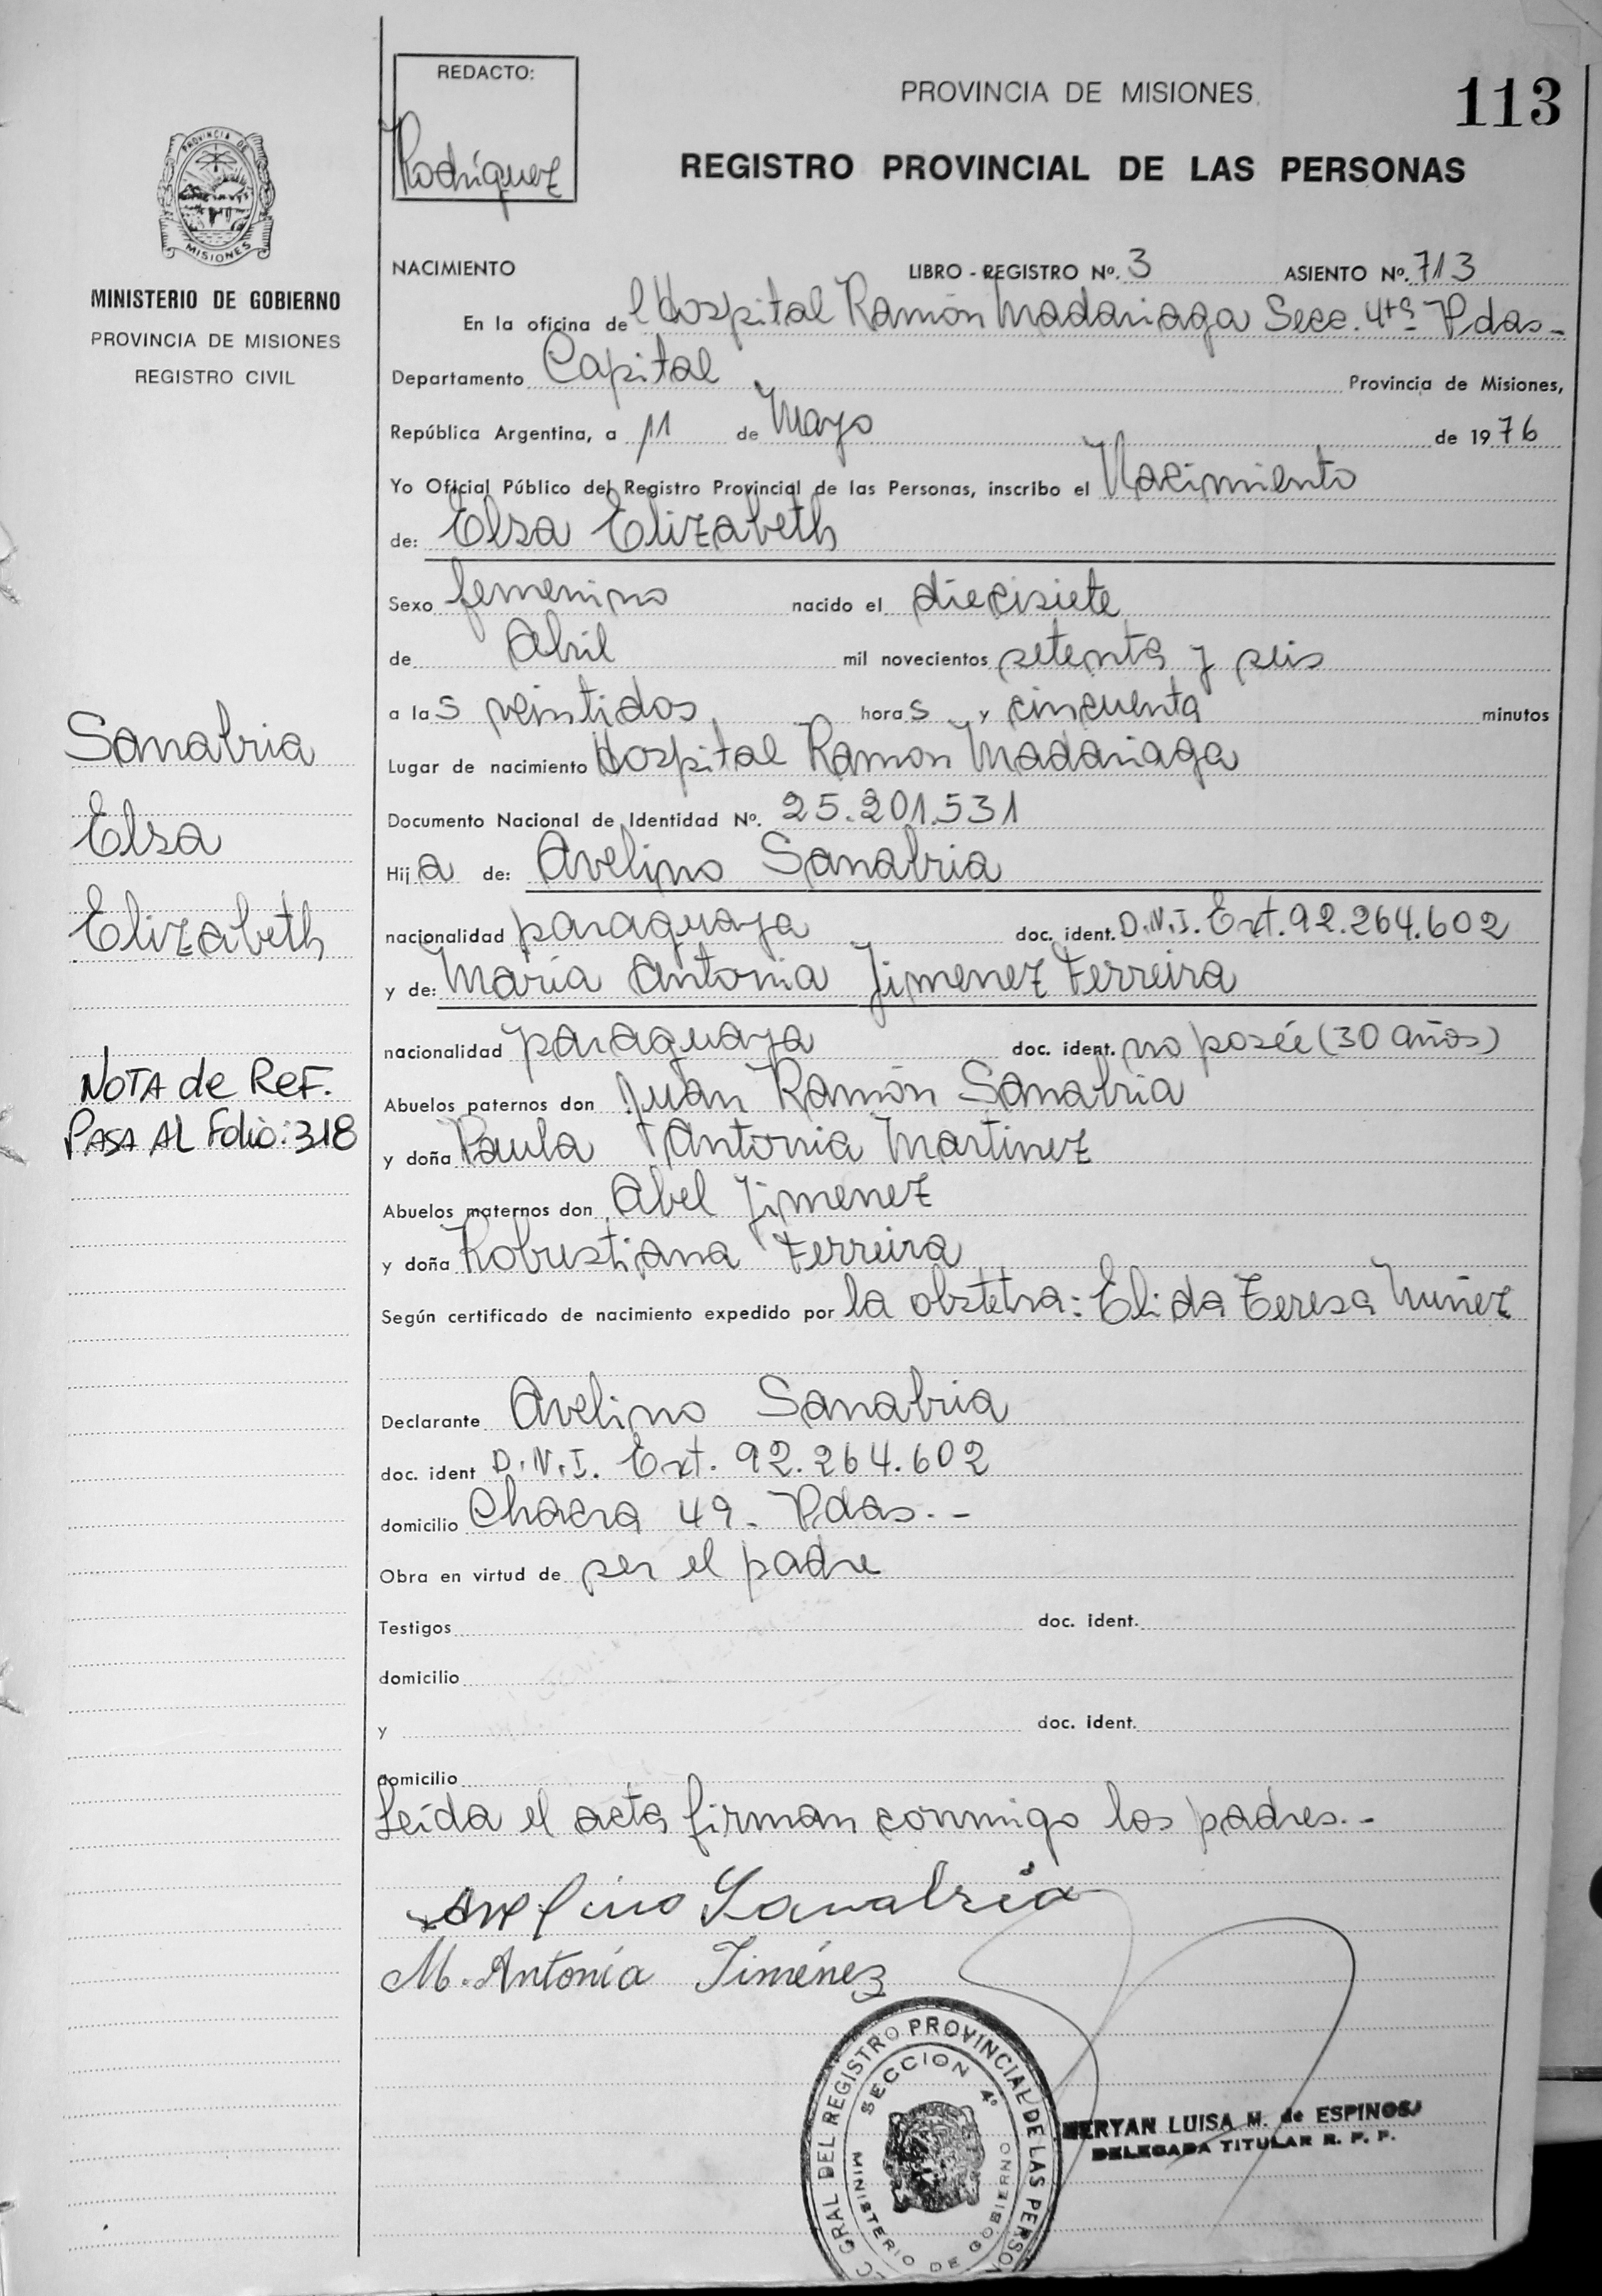 REDACTO:
Rodríguez
PROVINCIA DE MISIONES
113
REGISTRO PROVINCIAL DE LAS PERSONAS
PROVINCIA DE MISIONES
MINISTERIO DE GOBIERNO
PROVINCIA DE MISIONES
REGISTRO CIVIL
NACIMIENTO LIBRO - REGISTRO Nº. 3 ASIENTO Nº. 713
En la oficina del Hospital Ramón Madariaga Secc. 4ta Pdas-
Departamento Capital Provincia de Misiones,
República Argentina, a 11 de Mayo de 1976
Yo Oficial Público del Registro Provincial de las Personas, inscribo el Nacimiento
de: Elsa Elizabeth
Sexo femenino nacido el diecisiete
de Abril mil novecientos setenta y seis
a las veintidos horas y cincuenta minutos
Lugar de nacimiento Hospital Ramón Madariaga
Documento Nacional de Identidad Nº. 25.201.531
Hija de: Avelino Sanabria
nacionalidad paraguaya doc. ident. D.N.I. Ext. 92.264.602
y de: María Antonia Jimenez Ferreira
nacionalidad paraguaya doc. ident. no posée (30 años)
Abuelos paternos don Juan Ramón Sanabria
y doña Paula Antonia Martinez
Abuelos maternos don Abel Jimenez
y doña Robustiana Ferreira
Según certificado de nacimiento expedido por la obstetra: Elida Teresa Nuñez
Declarante Avelino Sanabria
doc. ident D.N.I. Ext. 92.264.602
domicilio Chacra 49- Pdas.-
Obra en virtud de ser el padre
Testigos doc. ident.
domicilio
y doc. ident.
domicilio
Leída el acta firman conmigo los padres.-
Avelino Sanabria
M. Antonia Jiménez
Sanabria
Elsa
Elizabeth
NOTA de REF.
PASA AL Folio: 318
GRAL DEL REGISTRO PROVINCIAL DE LAS PERSO
SECCION 4º
MINISTERIO DE GOBIERNO
LUISA M. de ESPINOSA
DELEGADA TITULAR R. P. P.